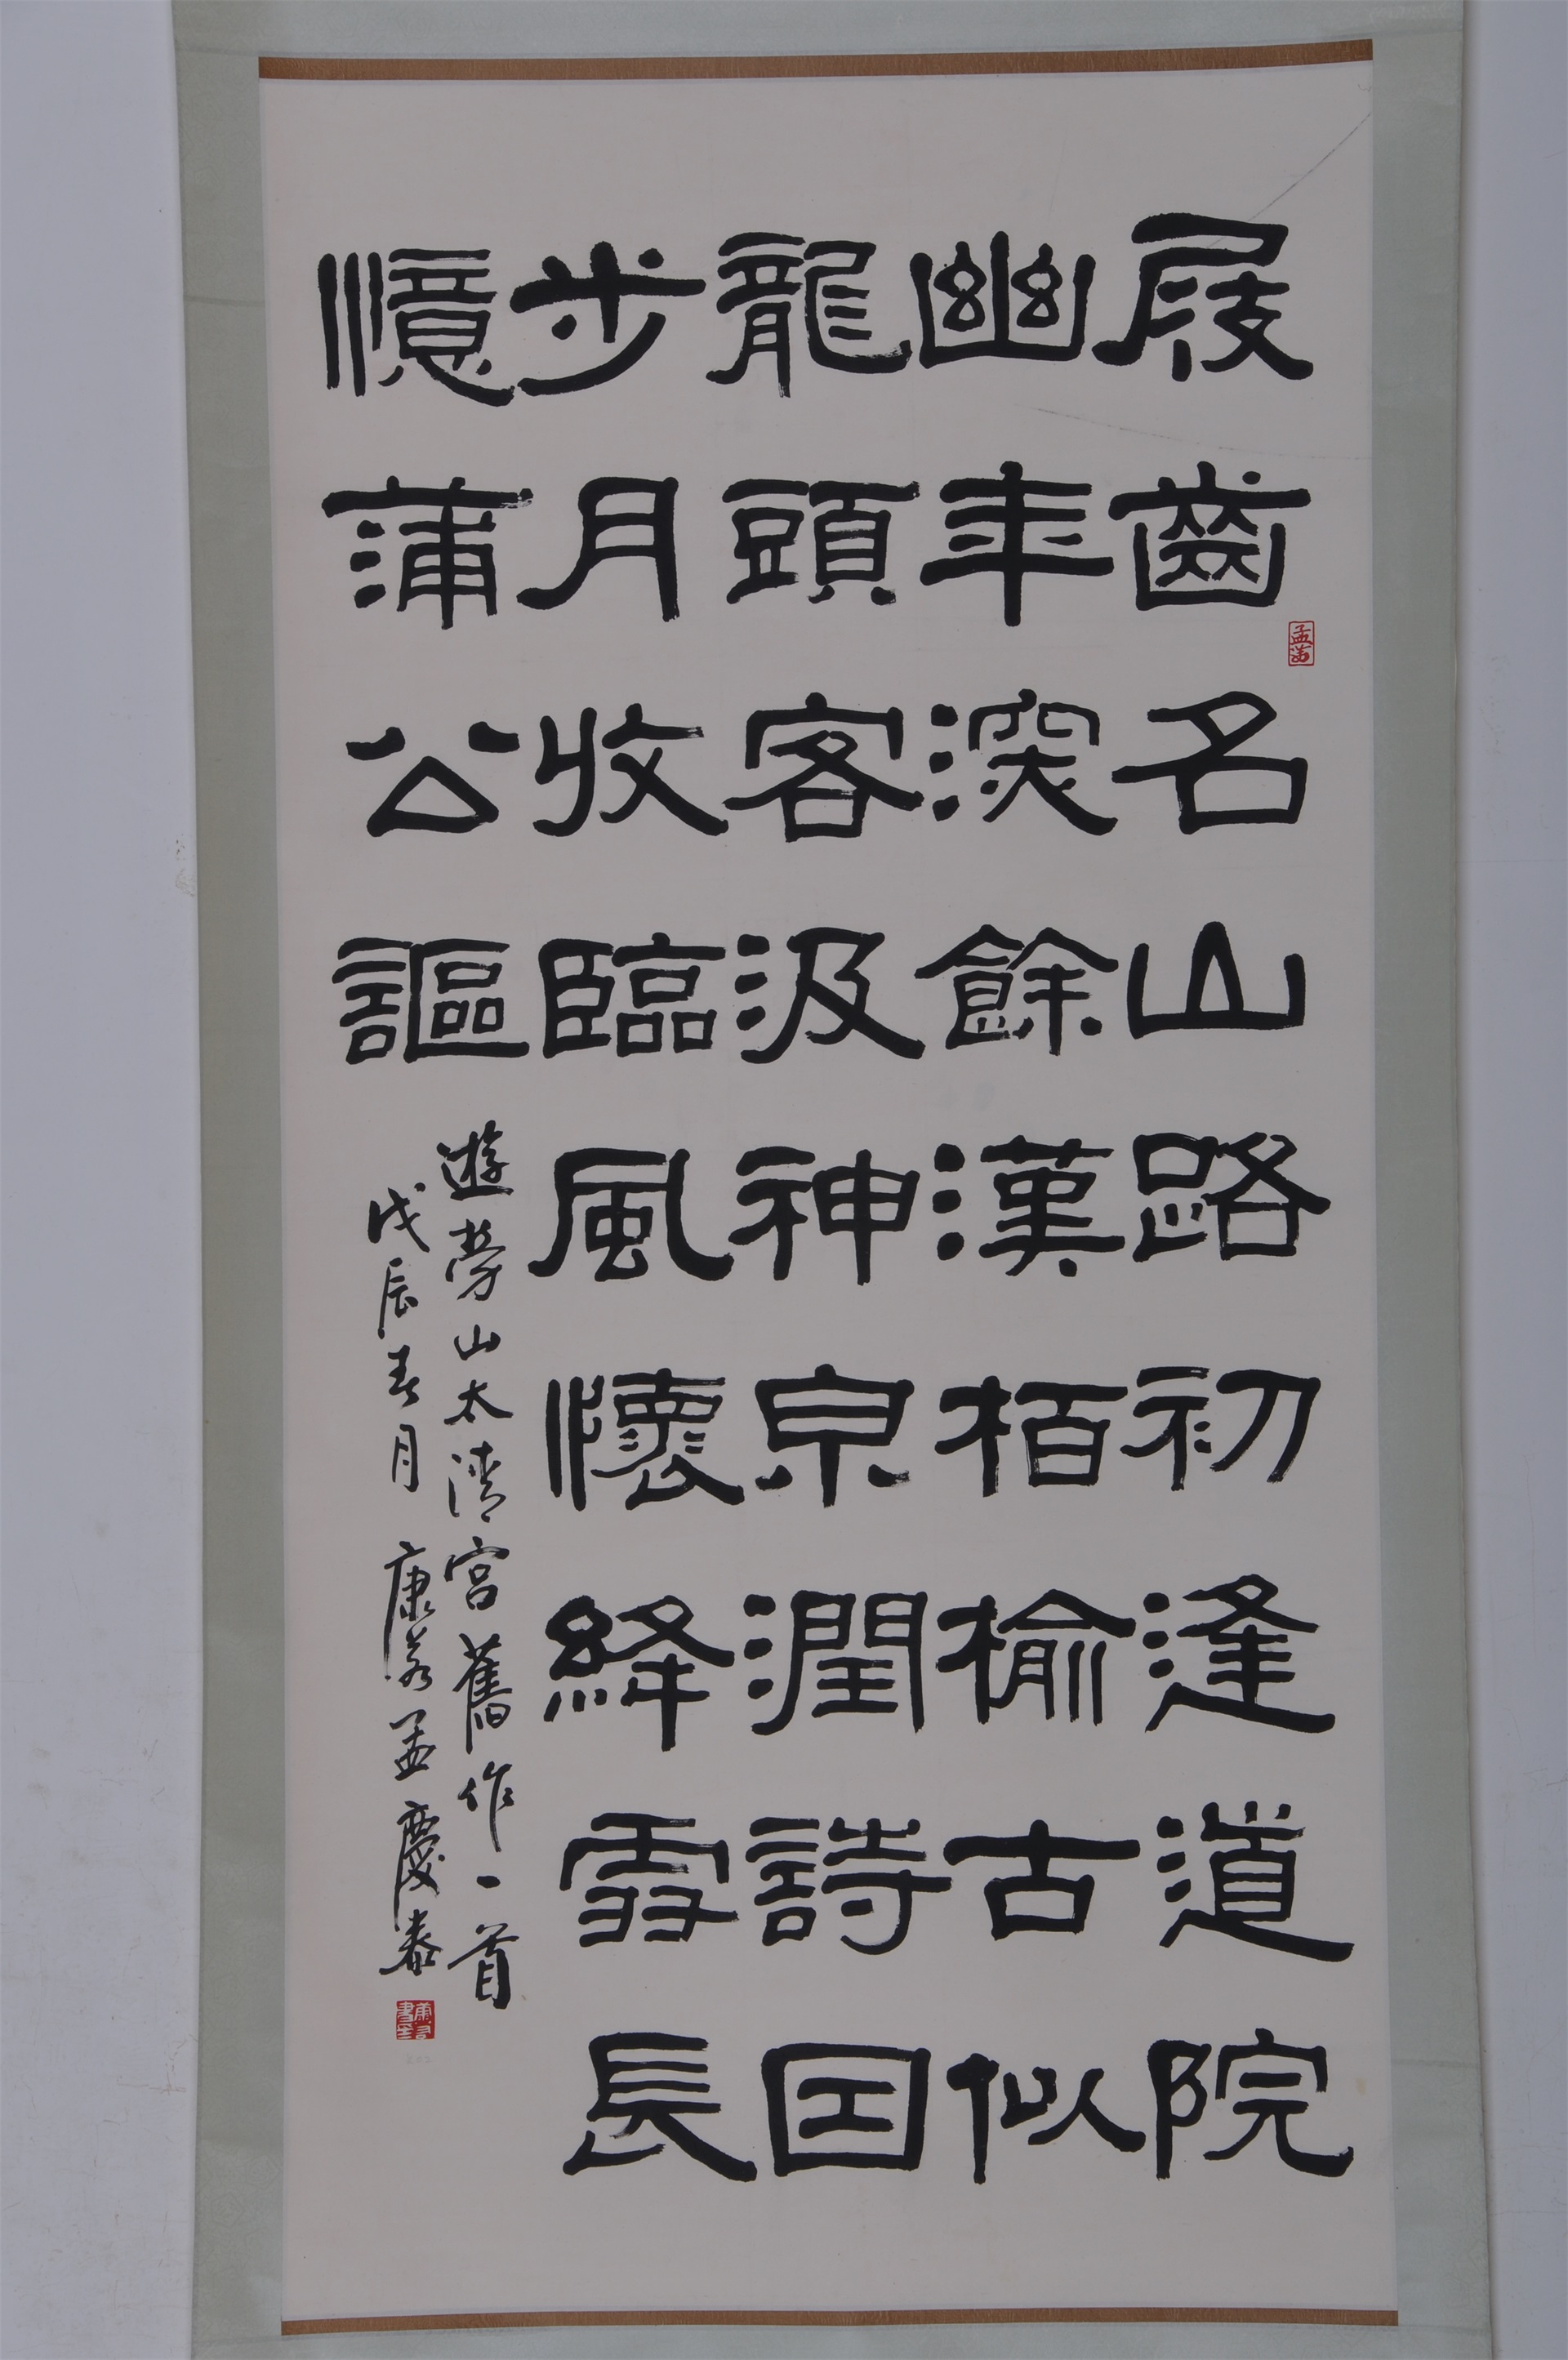 屐齒名山路初逢道院
幽年深餘漢栢榆古似
龍頭客汲神泉潤詩因
步月收臨風懷絳雪長
憶蒲公謳
遊勞山太清宮舊作一首
戊辰春月 康若孟慶泰